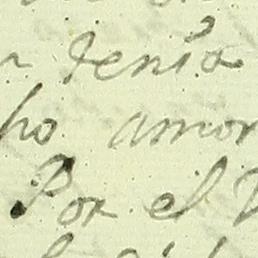 tenia
ho amor
Por el